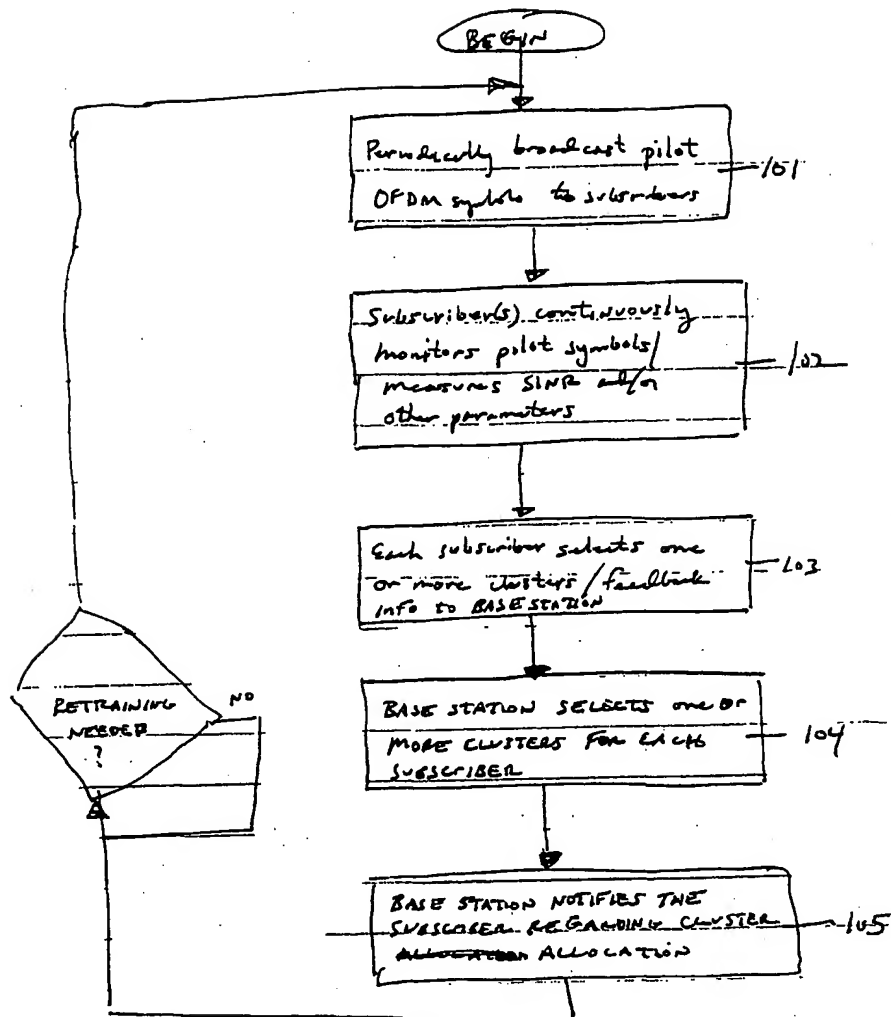 BEGIN
Periodically broadcast pilot
OFDM symbols to subscribers
101
Subscriber(s) continuously
monitors pilot symbols/
measures SINR and/or
other parameters
102
Each subscriber selects one
or more clusters/feedback
info to BASE STATION
103
RETRAINING
NEEDED
?
NO
BASE STATION SELECTS one OR
MORE CLUSTERS FOR EACH
SUBSCRIBER
104
BASE STATION NOTIFIES THE
SUBSCRIBER REGARDING CLUSTER
ALLOCATION ALLOCATION
105